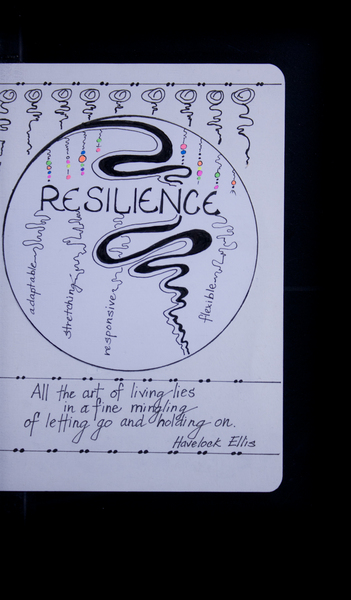 RESILIENCE
adaptable
stretching
responsive
flexible
All the art of living lies
in a fine mingling
of letting go and holding on.
Havelock Ellis